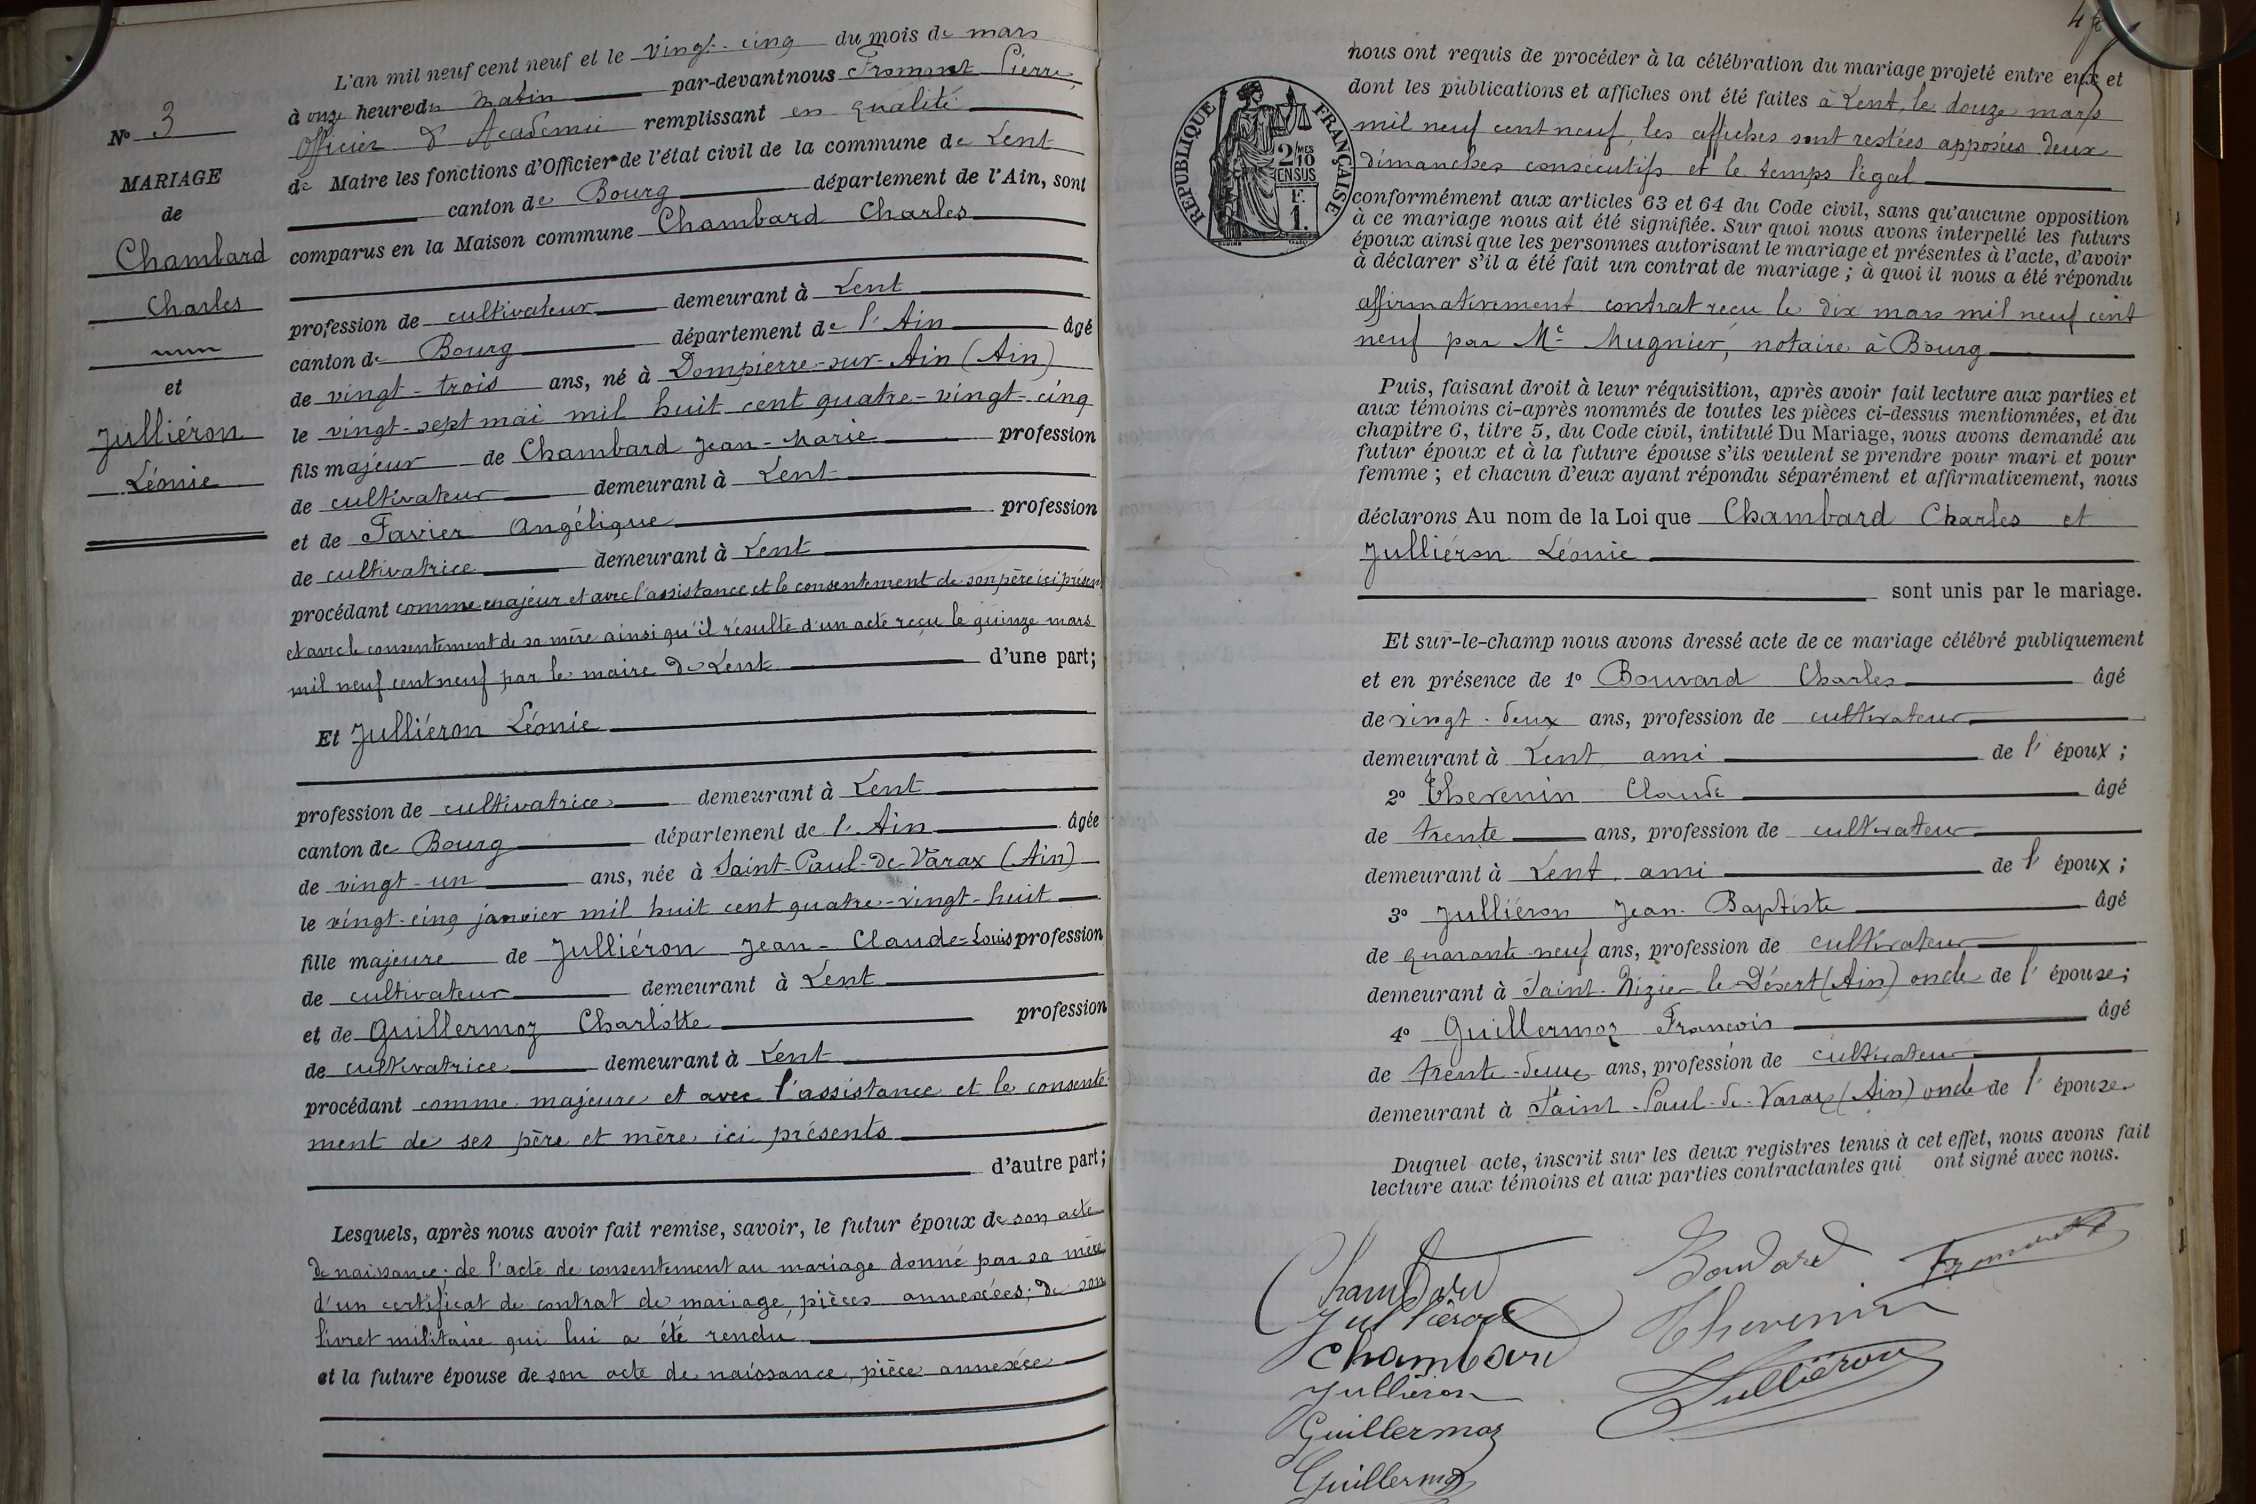 N° 3
MARIAGE
de
Chambard
Charles
et
Julliéron
Léonie
L'an mil neuf cent neuf et le vingt-cinq du mois de mars
à onze heures du matin par-devant nous Fromont Pierre,
Officier d'Academie remplissant en qualité
de Maire les fonctions d'Officier de l'état civil de la commune de Lent
canton de Bourg département de l'Ain, sont
comparus en la Maison commune Chambard Charles
profession de cultivateur demeurant à Lent
canton de Bourg département de l'Ain âgé
de vingt-trois ans, né à Dompierre-sur-Ain (Ain)
le vingt-sept mai mil huit cent quatre-vingt-cinq
fils majeur de Chambard Jean-Marie profession
de cultivateur demeurant à Lent
et de Favier Angélique profession
de cultivatrice demeurant à Lent
procédant comme majeur et avec l'assistance et le consentement de son père ici présent
et avec le consentement de sa mère ainsi qu'il résulte d'un acte reçu le quinze mars
mil neuf cent neuf par le maire de Lent d'une part;
Et Julliéron Léonie
profession de cultivatrice demeurant à Lent
canton de Bourg département de l'Ain âgée
de vingt-un ans, née à Saint-Paul-de-Varax (Ain)
le vingt-cinq janvier mil huit cent quatre-vingt-huit
fille majeure de Julliéron Jean-Claude-Louis profession
de cultivateur demeurant à Lent
et de Guillermoz Charlotte profession
de cultivatrice demeurant à Lent
procédant comme majeure et avec l'assistance et le consente-
ment de ses père et mère ici présents
d'autre part;
Lesquels, après nous avoir fait remise, savoir, le futur époux de son acte
de naissance; de l'acte de consentement au mariage donné par sa mère
d'un certificat de contrat de mariage, pièces annexées; de son
livret militaire qui lui a été rendu
et la future épouse de son acte de naissance, pièce annexée
RÉPUBLIQUE FRANÇAISE
2/10 MES
EN SUS
F.
1.
nous ont requis de procéder à la célébration du mariage projeté entre eux et
dont les publications et affiches ont été faites à Lent, le douze mars
mil neuf cent neuf, les affiches sont restées apposées deux
dimanches consécutifs et le temps légal
conformément aux articles 63 et 64 du Code civil, sans qu'aucune opposition
à ce mariage nous ait été signifiée. Sur quoi nous avons interpellé les futurs
époux ainsi que les personnes autorisant le mariage et présentes à l'acte, d'avoir
à déclarer s'il a été fait un contrat de mariage; à quoi il nous a été répondu
affirmativement contrat reçu le dix mars mil neuf cent
neuf par Me Mugnier, notaire à Bourg
Puis, faisant droit à leur réquisition, après avoir fait lecture aux parties et
aux témoins ci-après nommés de toutes les pièces ci-dessus mentionnées, et du
chapitre 6, titre 5, du Code civil, intitulé Du Mariage, nous avons demandé au
futur époux et à la future épouse s'ils veulent se prendre pour mari et pour
femme; et chacun d'eux ayant répondu séparément et affirmativement, nous
déclarons Au nom de la Loi que Chambard Charles et
Julliéron Léonie
sont unis par le mariage.
Et sur-le-champ nous avons dressé acte de ce mariage célébré publiquement
et en présence de 1° Bouvard Charles âgé
de vingt-deux ans, profession de cultivateur
demeurant à Lent ami de l'époux;
2° Thevenin Claude âgé
de trente ans, profession de cultivateur
demeurant à Lent, ami de l'époux;
3° Julliéron Jean-Baptiste âgé
de quarante-neuf ans, profession de cultivateur
demeurant à Saint-Nizier-le-Désert (Ain) oncle de l'épouse;
4° Guillermoz François âgé
de trente-deux ans, profession de cultivateur
demeurant à Saint-Paul-de-Varax (Ain) oncle de l'épouse
Duquel acte, inscrit sur les deux registres tenus à cet effet, nous avons fait
lecture aux témoins et aux parties contractantes qui ont signé avec nous.
Chambard Bouvard Fromont
Julliéron Thevenin
Chambard
Julliéron Julliéron
Guillermoz
Guillermoz